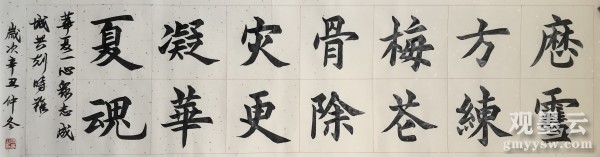 歷雪
方練
梅花
骨除
灾更
凝華
夏魂
華夏一心衆志成
城共刻時艱
歲次辛丑仲冬
观墨云
gmyysw.com